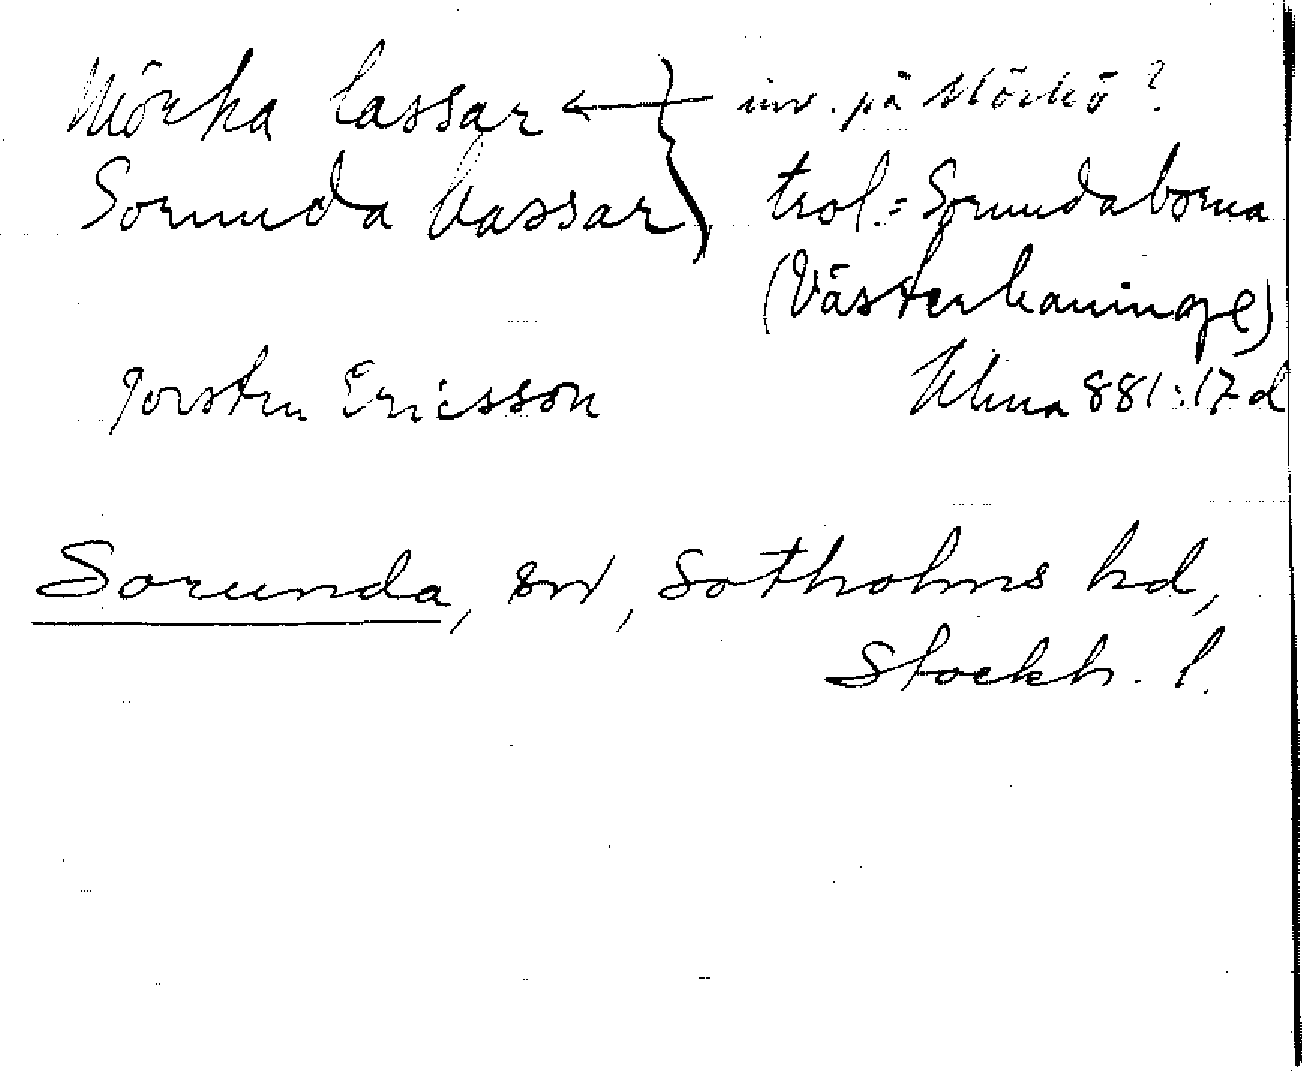 Mörka lassar ← inv. på Mörkö?
Sorunda lassar } trol. = Sorundaborna
(Västerhaninge)
Torsten Ericsson Ulma 881:17 d
Sorunda, sn, Sotholms hd,
Stockh. l.